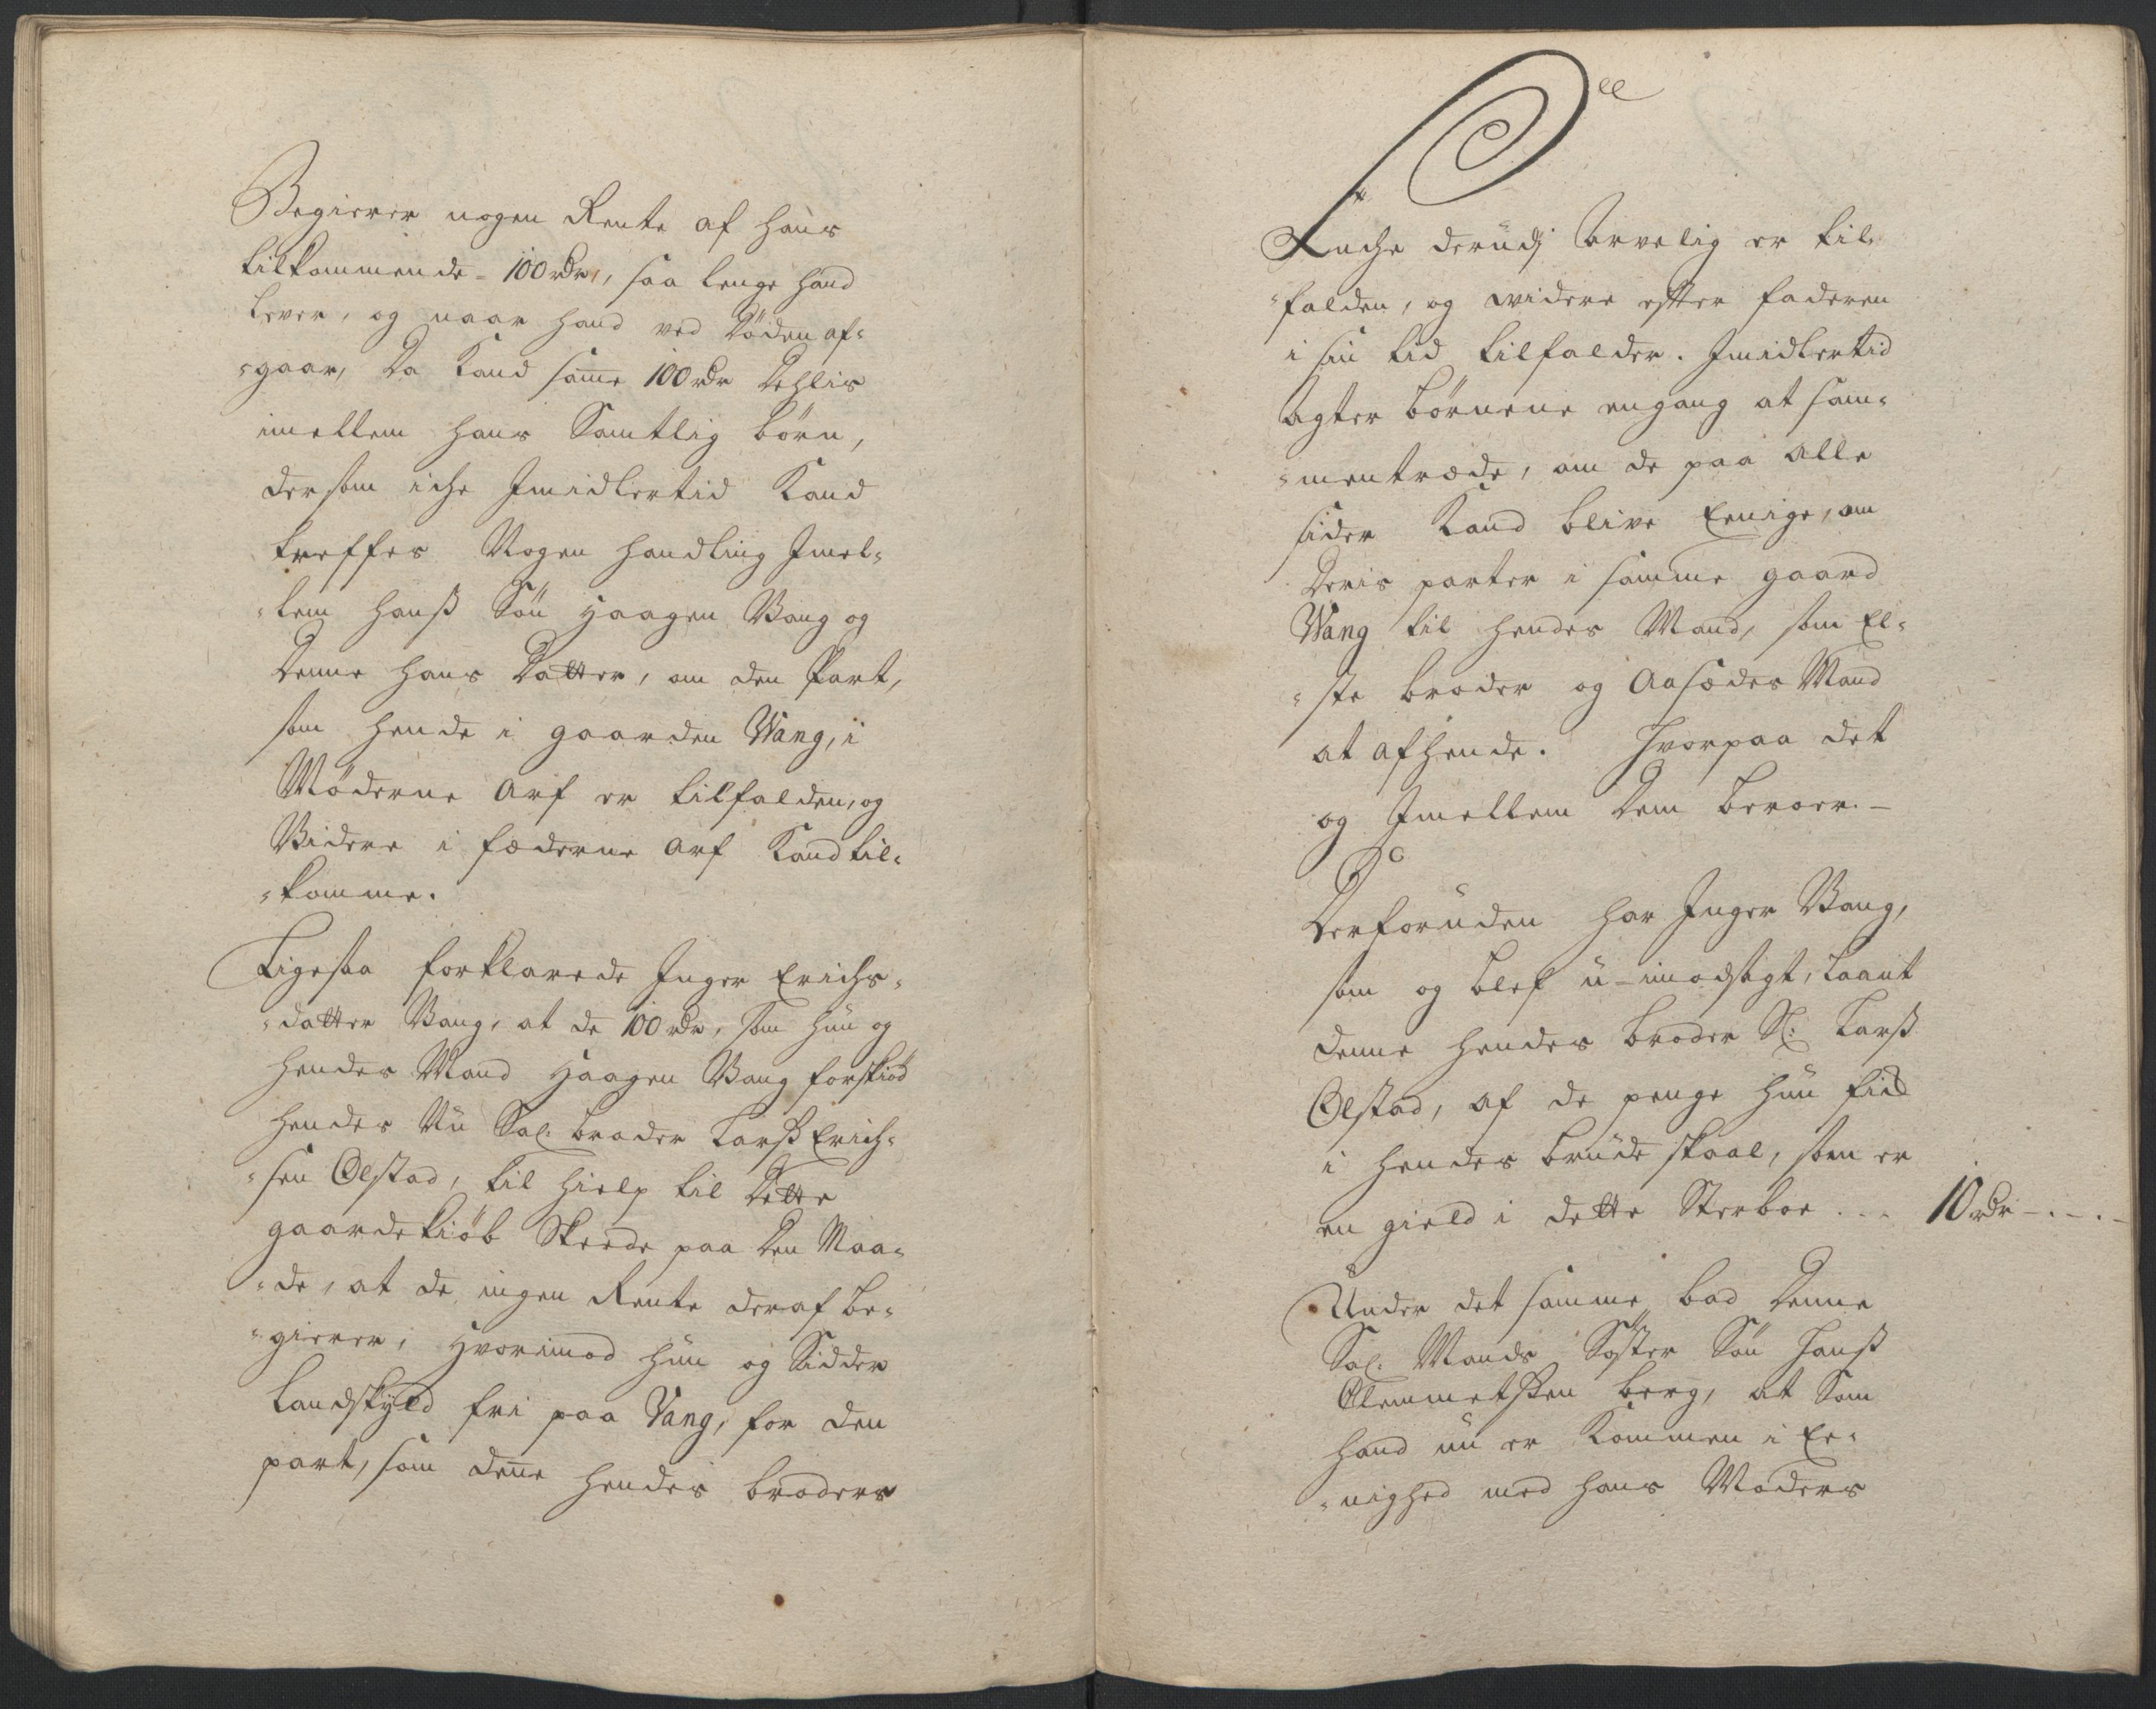 Begierer nogen Rente af hans
tilkommende - 100 rdr, saa lenge hand
lever, og naar hand ved Döden af-
-gaar, Da Kand samme 100 rdr Dehlis
imellem hans Samtlig börn,
dersom iche Imidlertid Kand
treffes Nogen handling Imel-
-lem hanß Sön Haagen Vang og
Denne hans Datter, om den Part,
som hende i gaarden Wang, i
Möderne Arf er tilfalden, og
Videre i fæderne Arf Kand til-
-komme.
Ligesaa forklarede Inger Erichs-
-datter Vang, at de 100 rdr, som hun og
hendes Mand Haagen Vang forskiöd
hendes Nu Sal. broder Larß Erich-
-sen Olstad, til hielp til Dette
gaardekiöb Skeede paa Den Maa-
-de, at de ingen Rente deraf be-
-gierer, Hvorimod hun og Sidder
Landskyld fri paa Vang, for den
part, som denne hendes broders
Enche derudj Arvelig er til-
-falden, og widere efter faderen
i sin tid tilfalder. Imidlertid
agter börnene engang at sam-
-mentræde, om de paa alle
sider Kand blive Eenige, om
Deris parter i samme gaard
Wang til hendes Mand, som El-
-ste broder og Aasædes Mand
at afhende. Hvorpaa det
og Imellem Dem beroer. -
Derforuden har Inger Vang,
som og blef u-imodsagt, laant
denne hendes broder Sl: Larß
Olstad, af de penge hun fick
i hendes brude skaal, som er
en gield i dette Sterboe . . . 10 rdr - . - . -
Under det samme bad Denne
Sal. Mands Söster Sön Hanß
Clemmetßen berg, at Som
hand nu er Kommen i Ee-
-nighed med hans Moders